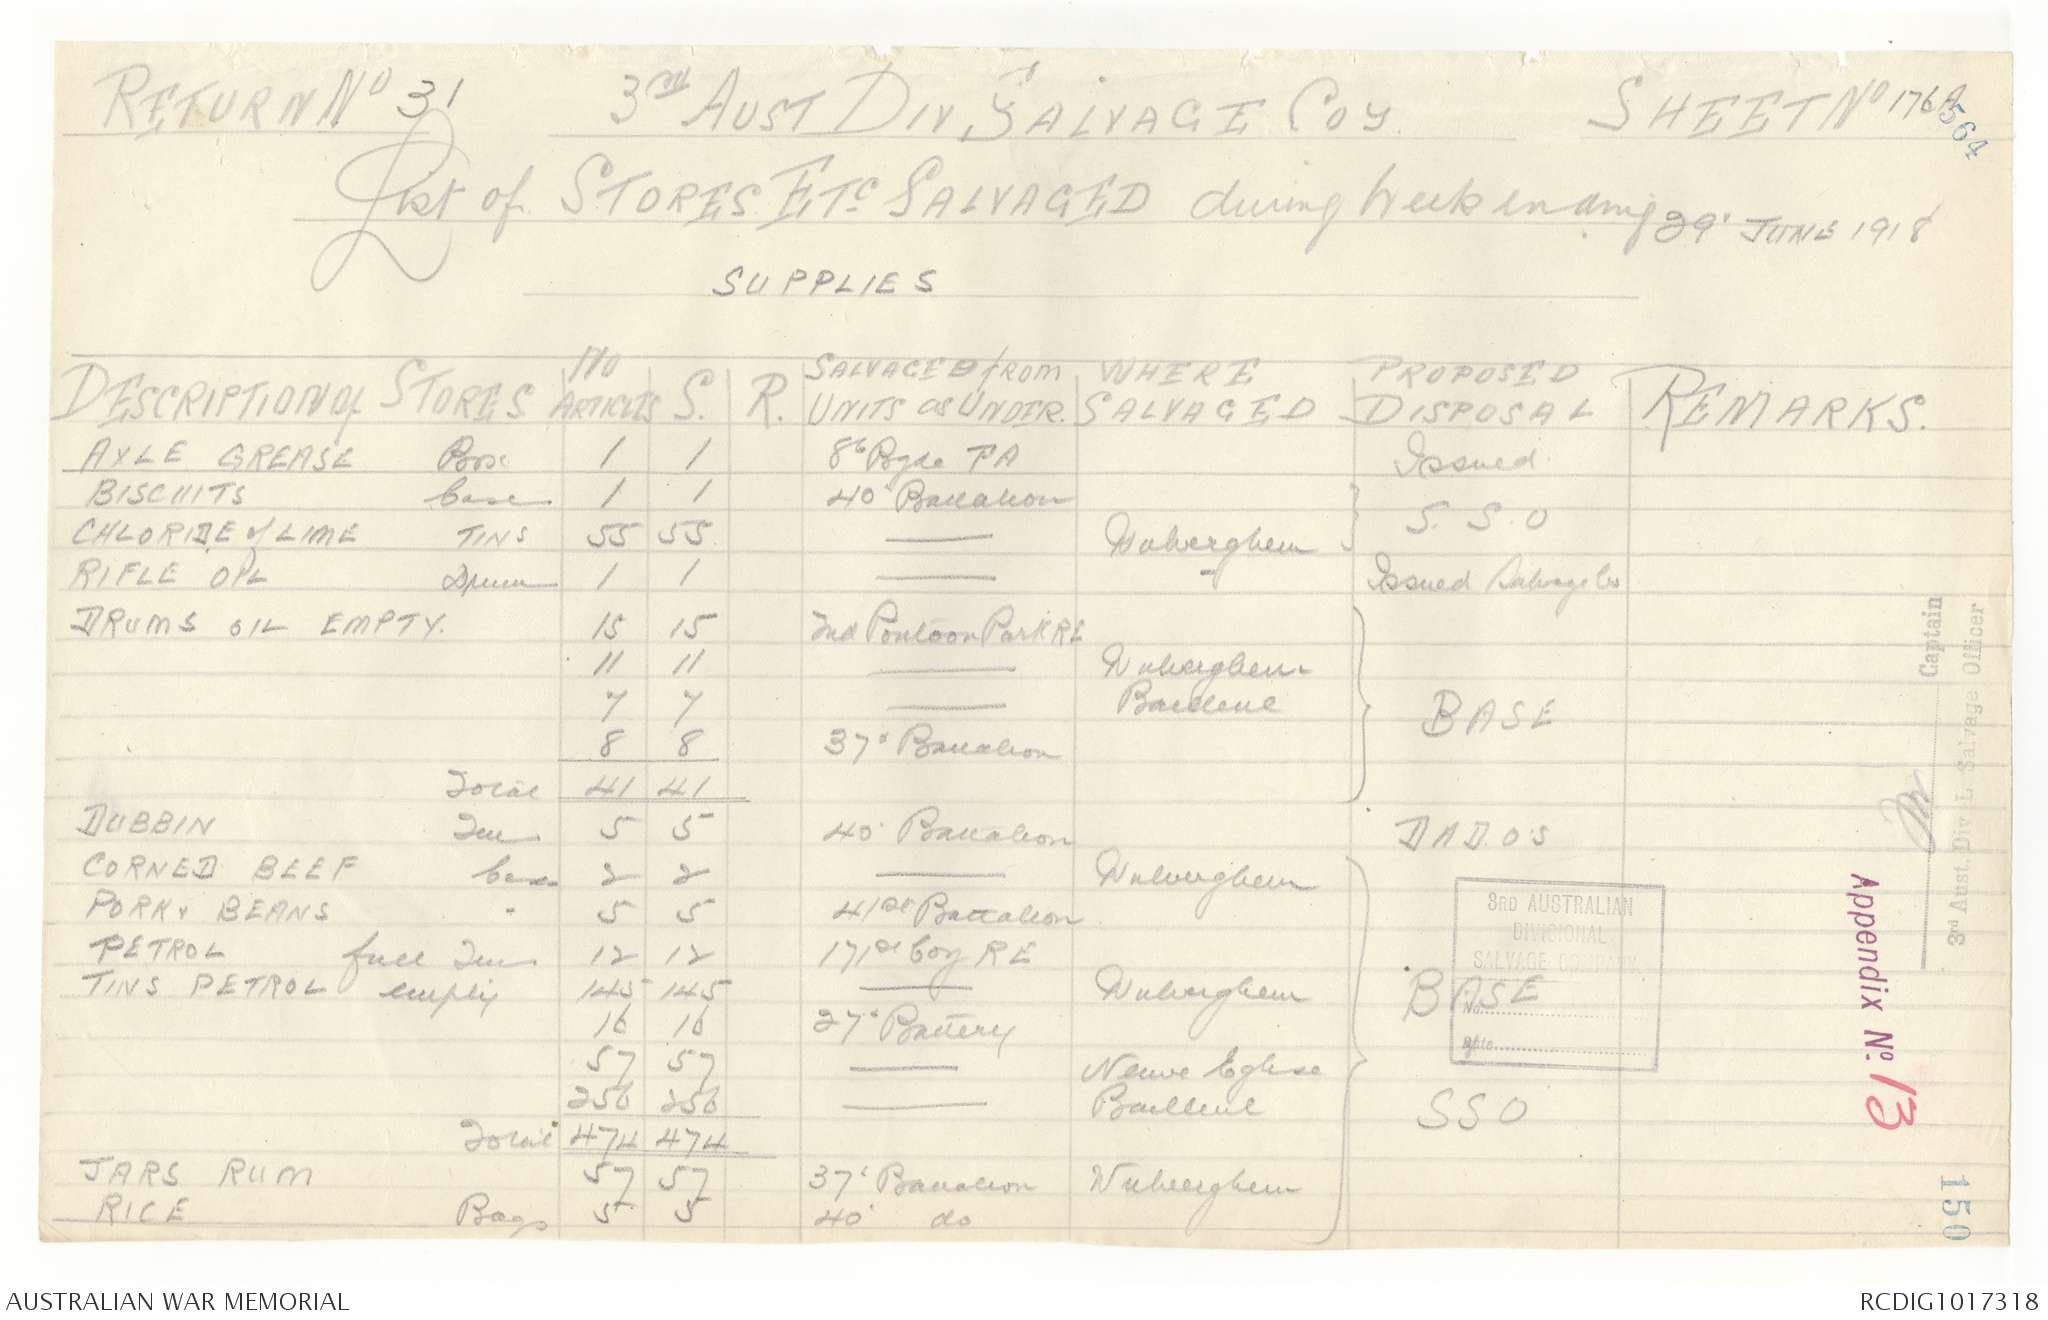 RETURN No 31 3rd AUST DIV SALVAGE COY. SHEET No 176A
564
List of STORES ETC SALVAGED during Week ending 29' JUNE 1918
SUPPLIES
DESCRIPTION of STORES No ARTICLES S. R. SALVAGED from UNITS as UNDER. WHERE SALVAGED PROPOSED DISPOSAL REMARKS.
AXLE GREASE Box 1 1 8th Bgde FA Issued
BISCUITS Case 1 1 40' Battalion
CHLORIDE of LIME TINS 55 55 — Wulverghem S.S.O
RIFLE OIL Drum 1 1 — - Issued Salvage Co
DRUMS OIL EMPTY. 15 15 2nd Pontoon Park RE
11 11 — Wulverghem
7 7 — Bailleul BASE
8 8 37' Battalion
Total 41 41
DUBBIN Tins 5 5 40' Battalion DADOS
CORNED BEEF Cases 2 2 — Wulverghem
PORK & BEANS " 5 5 41st Battalion
PETROL full Tins 12 12 171st Coy RE
TINS PETROL empty 145 145 — Wulverghem BASE
16 16 27' Battery
57 57 — Neuve Eglise
256 256 — Bailleul SSO
Total 474 474
JARS RUM 57 57 37' Battalion Wulverghem
RICE Bags 5 5 40' do
3RD AUSTRALIAN
DIVISIONAL
SALVAGE COMPANY.
No.
Date
Captain
3rd Aust. Div'l. Salvage Officer
Appendix No. 13
150
AUSTRALIAN WAR MEMORIAL RCDIG1017318